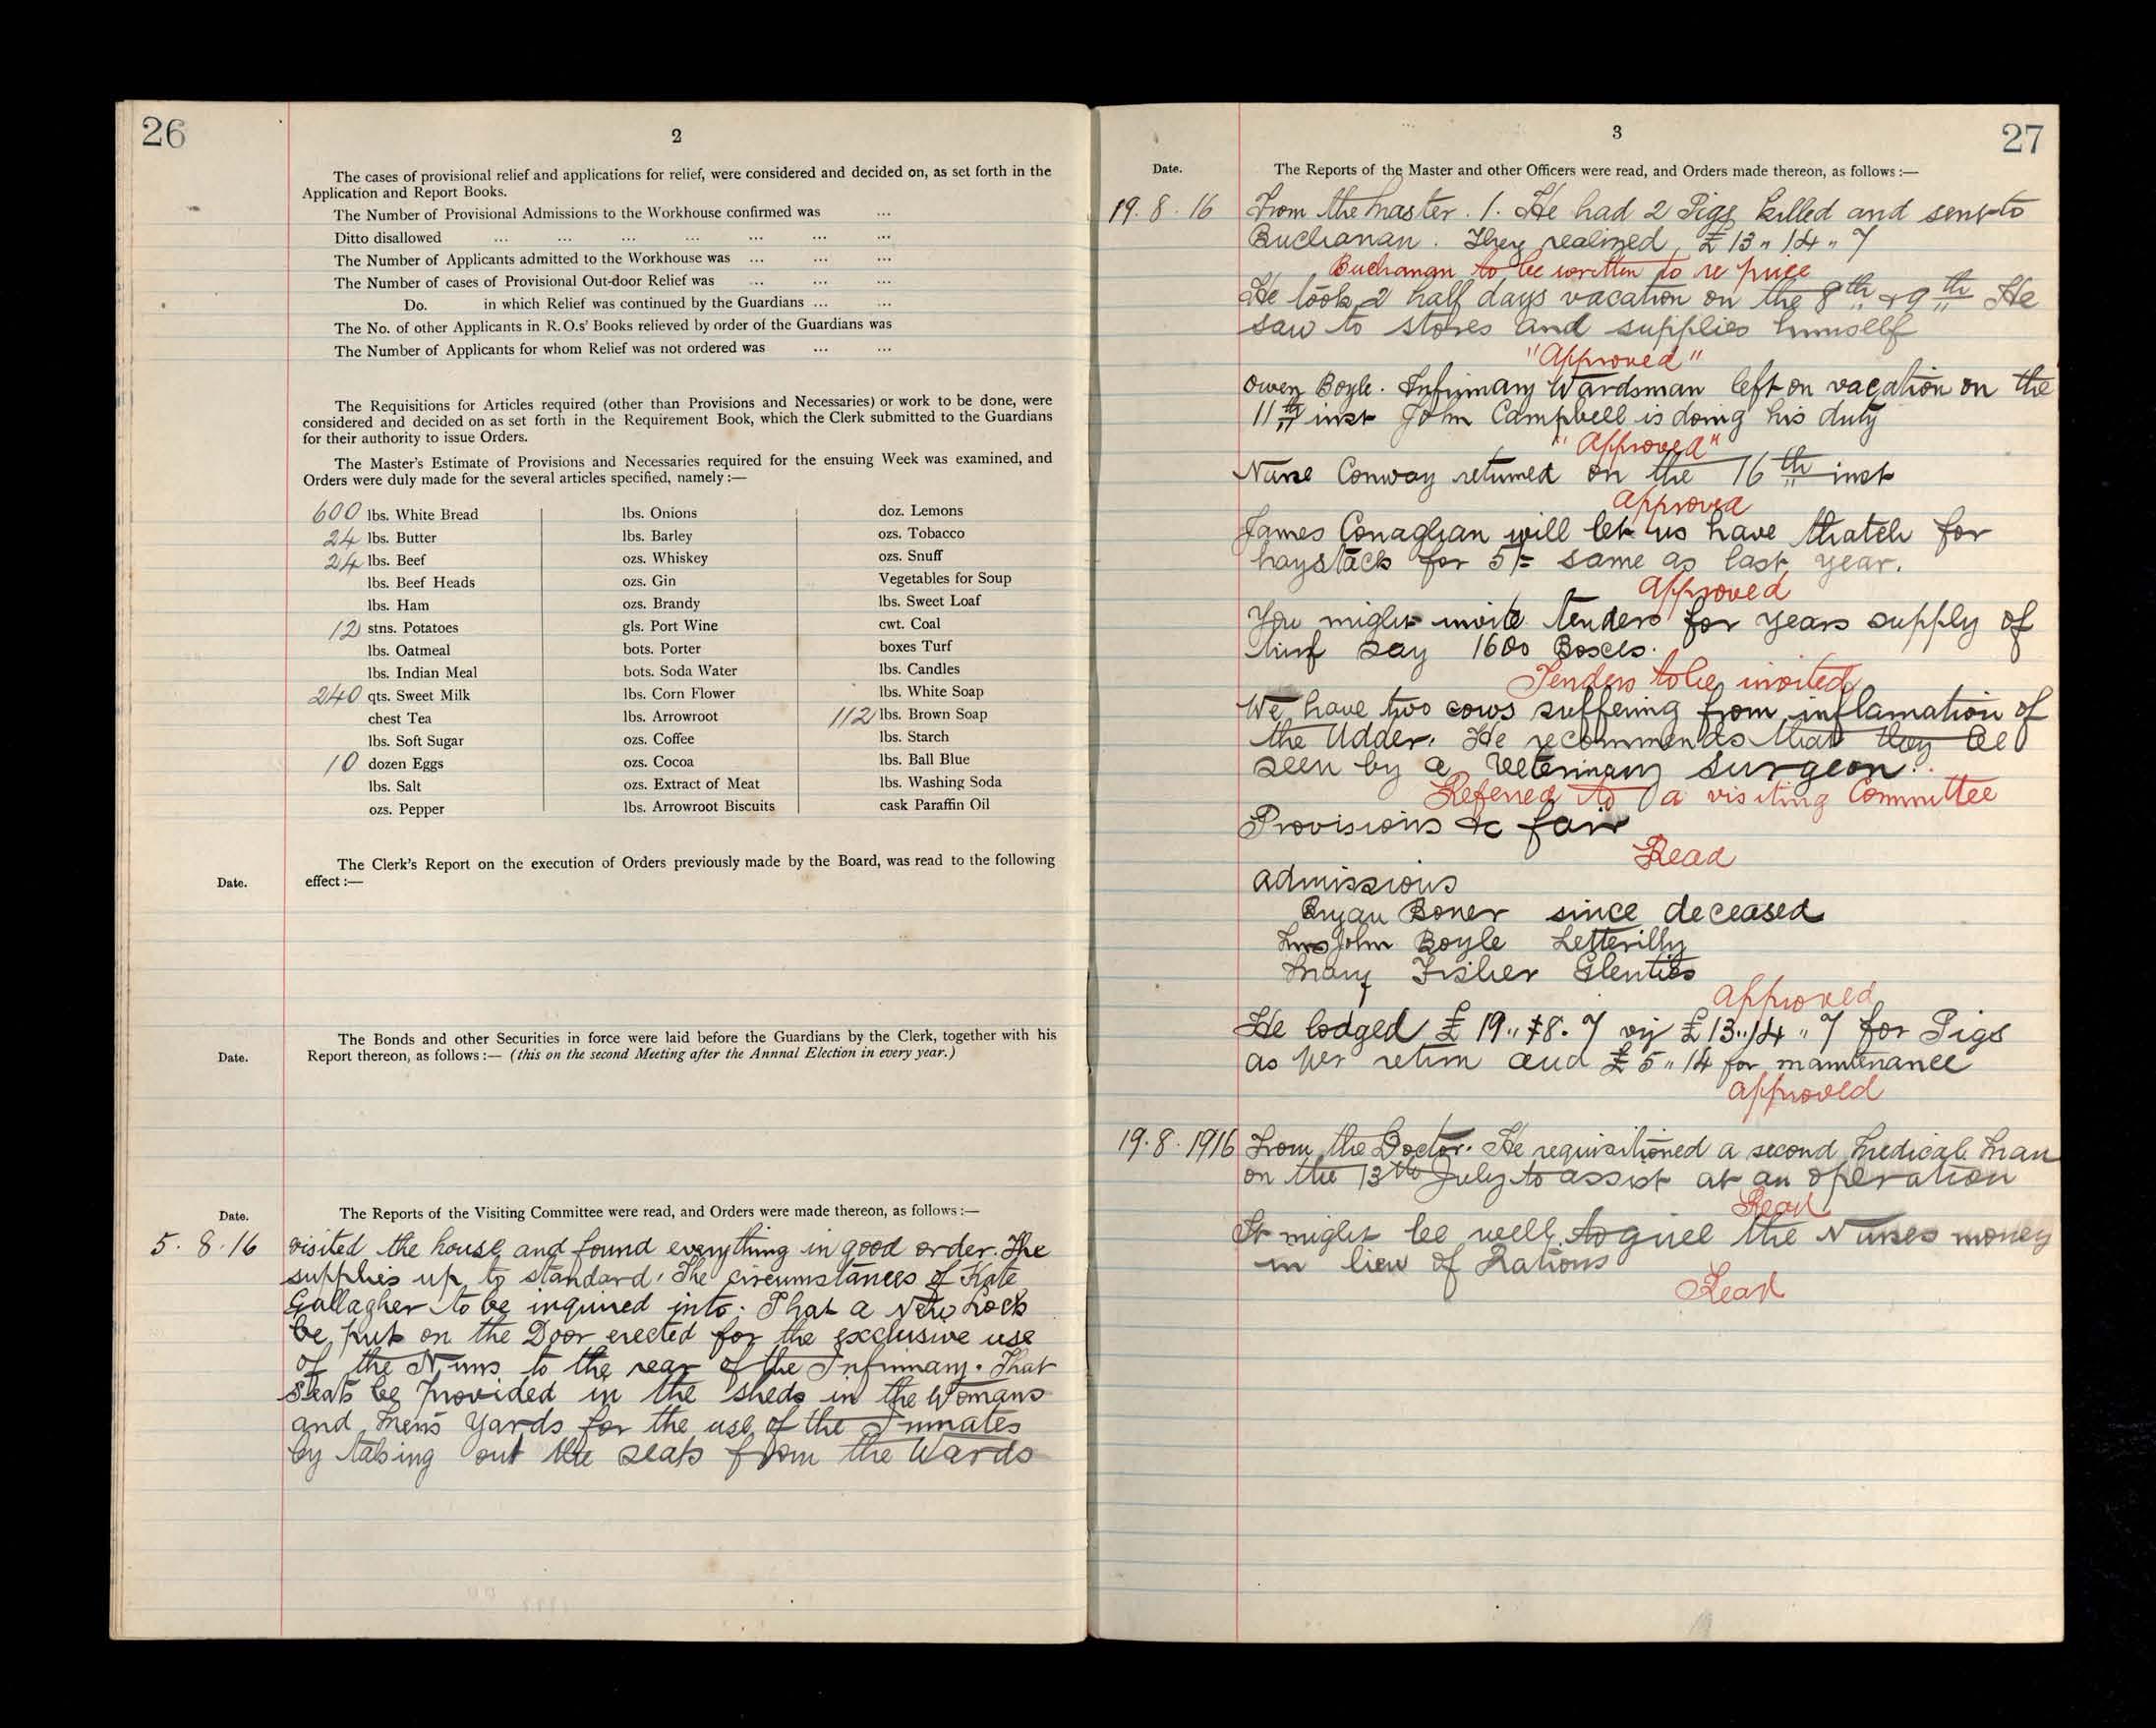 26
2
The cases of provisional relief and applications for relief, were considered and decided on, as set forth in the
Application and Report Books.
The Number of Provisional Admissions to the Workhouse confirmed was ...
Ditto disallowed ... ... ... ... ... ... ...
The Number of Applicants admitted to the Workhouse was ... ... ...
The Number of cases of Provisional Out-door Relief was ... ... ...
Do. in which Relief was continued by the Guardians ... ...
The No. of other Applicants in R.O.s' Books relieved by order of the Guardians was
The Number of Applicants for whom Relief was not ordered was ... ...
The Requisitions for Articles required (other than Provisions and Necessaries) or work to be done, were
considered and decided on as set forth in the Requirement Book, which the Clerk submitted to the Guardians
for their authority to issue Orders.
The Master's Estimate of Provisions and Necessaries required for the ensuing Week was examined, and
Orders were duly made for the several articles specified, namely :—
600 lbs. White Bread
24 lbs. Butter
24 lbs. Beef
lbs. Beef Heads
lbs. Ham
12 stns. Potatoes
lbs. Oatmeal
lbs. Indian Meal
240 qts. Sweet Milk
chest Tea
lbs. Soft Sugar
10 dozen Eggs
lbs. Salt
ozs. Pepper
lbs. Onions
lbs. Barley
ozs. Whiskey
ozs. Gin
ozs. Brandy
gls. Port Wine
bots. Porter
bots. Soda Water
lbs. Corn Flower
lbs. Arrowroot
ozs. Coffee
ozs. Cocoa
ozs. Extract of Meat
lbs. Arrowroot Biscuits
doz. Lemons
ozs. Tobacco
ozs. Snuff
Vegetables for Soup
lbs. Sweet Loaf
cwt. Coal
boxes Turf
lbs. Candles
lbs. White Soap
112 lbs. Brown Soap
lbs. Starch
lbs. Ball Blue
lbs. Washing Soda
cask Paraffin Oil
The Clerk's Report on the execution of Orders previously made by the Board, was read to the following
Date. effect :—
The Bonds and other Securities in force were laid before the Guardians by the Clerk, together with his
Date. Report thereon, as follows :— (this on the second Meeting after the Annnal Election in every year.)
Date. The Reports of the Visiting Committee were read, and Orders were made thereon, as follows :—
5. 8. 16 visited the house and found everything in good order. The
supplies up to standard. The circumstances of Kate
Gallagher to be inquired into. That a New Lock
be put on the Door erected for the exclusive use
of the Nuns to the rear of the Infirmary. That
Seats be provided in the sheds in the Womans
and Mens yards for the use of the Inmates
by taking out the seats from the Wards
3
27
Date. The Reports of the Master and other Officers were read, and Orders made thereon, as follows :—
19. 8. 16 From the Master. 1. He had 2 Pigs killed and sent to
Buchanan. They realized £13„ 14„ 7
Buchanan to be written to re price
He took 2 half days vacation on the 8th & 9th He
saw to stores and supplies himself
"Approved"
Owen Boyle. Infirmary Wardsman left on vacation on the
11th inst John Campbell is doing his duty
"Approved"
Nurse Conway returned on the 16th inst
Approved
James Conaghan will let us have thatch for
haystack for 5/= same as last year.
Approved
You might invite tenders for years supply of
turf say 1600 Boxes.
Tenders to be invited
We have two cows suffering from inflamation of
the Udder. He recommends that they be
seen by a Veterinary Surgeon.
Referred to a visiting Committee
Provisions &c fair
Read
admissions
Bryan Boner since deceased
John Boyle Letterilly
Mary Fisher Glenties
Approved
He lodged £19„ 8. 7 viz £13„14„ 7 for Pigs
as per return and £5„ 14 for maintenance
approved
19. 8. 1916 From the Doctor. He requisitioned a second Medical Man
on the 13th July to assist at an operation
Read
It might be well to give the Nurses money
in lieu of Rations
Read